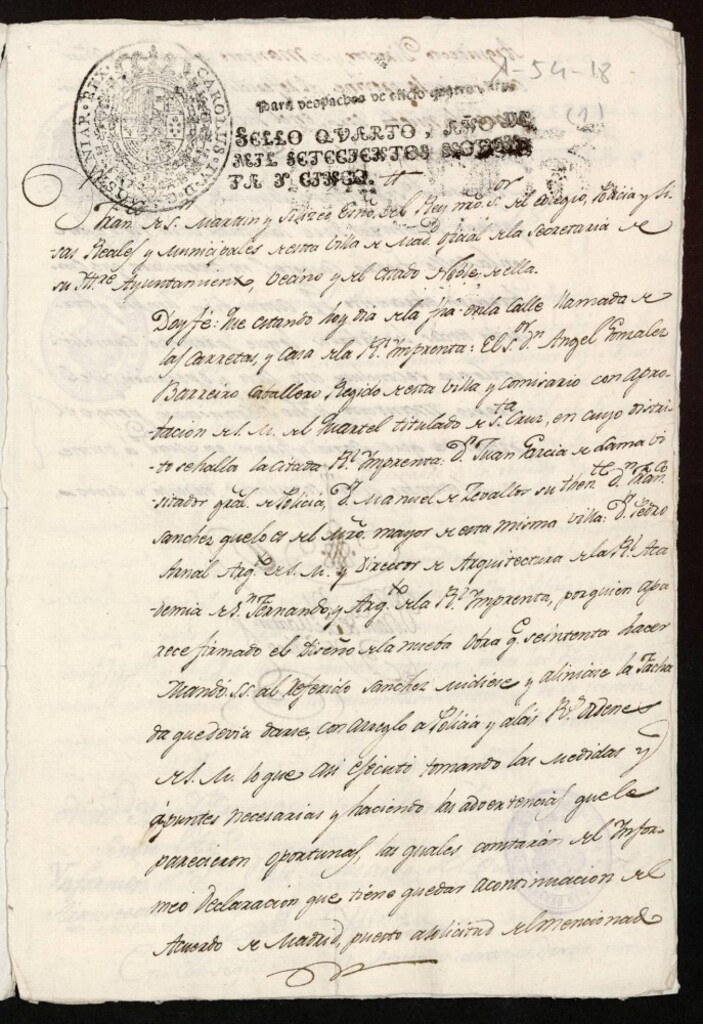 1-54-18
(1)
CAROLUS IV D G HISPANIAR REX
Para despachos de oficio quatro mrs
SELLO QVARTO, AÑO DE
MIL SETECIENTOS NOVEN
TA Y CINCO.
Fran.co de S. Martin y Essno. del Rey nro. S.or del Colegio, Policia y Si-
sas Reales y Municipales de esta Villa de Mad. oficial de la Secretaria de
su Ill.re Ayuntamiento, Vecino y del Estado Noble de ella.
Doy fé: Que estando hoy dia de la fha. en la Calle llamada de
las Carretas, y Casa de la R.l Imprenta: El S.or D.n Angel Gonzalez
Barreiro Caballero Regidor de esta Villa y Comisario con apro-
-bacion de S. M. del Quartel titulado de S.ta Cruz, en cuyo distri-
-to se halla la citada R.l Imprenta: D.n Juan Garcia de Lama vi-
-sitador gral. de Policia, D. Manuel de Zevallos su Then.te D.n Fran.co
Sanchez que lo es del Mro. mayor de esta misma villa: D.n Pedro
Arnal Arq.to de S. M. y Director de Arquitectura de la R.l Aca
demia de S.n Fernando, y Arq.to de la R.l Imprenta, por quien apa
rece firmado el Diseño de la nueba Obra q. se intenta hacer
Mandó S.S. al referido Sanchez midiese y aliniase la Facha
da que devia darse, con arreglo a Policia y a las R.s ordenes
de S. M. lo que asi ejecutó tomando las medidas y
apuntes necesarias y haciendo las advertencias que le
parecieron oportunas, las quales constarán del Infor-
me o Declaracion que tiene quedar acontinuacion del
Acuerdo de Madrid, puesto a solicitud del mencionado